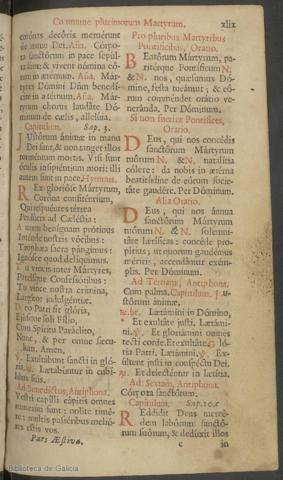 Commune plurimorum Martyrum. xlix
corónis decóris meréntur
de manu Dei. Aña. Córpo
ra sanctórum in pace sepúl
ta sunt; & vivent nómina eó
rum in ætérnum. Aña. Már
tyres Dómini Dñm benedí
cite in ætérnum. Aña. Már
tyrum chorus laudáte Dó
minum de cælis, allelúia.
Capitulum. Sap. 3.
Justórum ánimæ in manu
Dei sunt, & non tanget illos
torméntum mortis. Visi sunt
óculis insipiéntium mori: illi
autem sunt in pace. Hymnus.
Rex glorióse Mártyrum,
Coróna confiténtium,
Qui respuéntes térrea
Perdúcis ad Cæléstia:
Aurem benígnam prótinus
Inténde nostris vócibus:
Trophæa sacra pángimus:
Ignósce quod delíquimus.
Tu vincis inter Mártyres,
Parcísque Confessóribus:
Tu vince nostra crímina,
Largitor indulgéntiæ.
Deo Patri sit glória,
Ejúsque soli Fílio,
Cum Spíritu Paráclito,
Nunc, & per omne sæcu-
lum. Amen.
℣. Exultábunt sancti in gló
ria. ℟. Lætabúntur in cubí-
libus suis.
Ad Benedictus, Antiphona.
Vestri capílli cápitis omnes
numeráti sunt: nolíte timé-
re: multis passéribus melió-
res estis vos.
Pars Æstiva.
Pro pluribus Martyribus
Pontificibus, Oratio.
Beatórum Mártyrum, pa-
riterque Pontíficum N.
& N. nos, quæsumus Dó-
mine, festa tueántur; & eó-
rum comméndet orátio ve-
neránda. Per Dóminum.
Si non fuerint Pontifices,
Oratio.
Deus, qui nos concédis
sanctórum Mártyrum
tuórum N. & N. natalítia
cólere: da nobis in ætérna
beatitúdine de eórum socie-
táte gaudére. Per Dóminum.
Alia Oratio.
Deus, qui nos ánnua
sanctórum Mártyrum
tuórum N. & N. solemni-
táte lætíficas: concéde pro-
pítius; ut quorum gaudémus
méritis, accendámur exém-
plis. Per Dóminum.
Ad Tertiam, Antiphona.
Cum palma. Capitulum. Ju-
stórum ánimæ.
℟. br. Lætámini in Dómino,
* Et exultáte justi. Lætámi-
ni. ℣. Et gloriámini omnes
recti corde. Et exultáte. Gló
ria Patri. Lætámini. ℣. Ex-
últent justi in conspéctu Dei.
℟. Et delecténtur in lætítia.
Ad Sextam, Antiphona.
Córpora sanctórum.
Capitulum. Sap. 10.
Réddidit Deus mercé-
dem labórum sanctó-
rum suórum, & dedúxit illos
c in
Biblioteca de Galicia